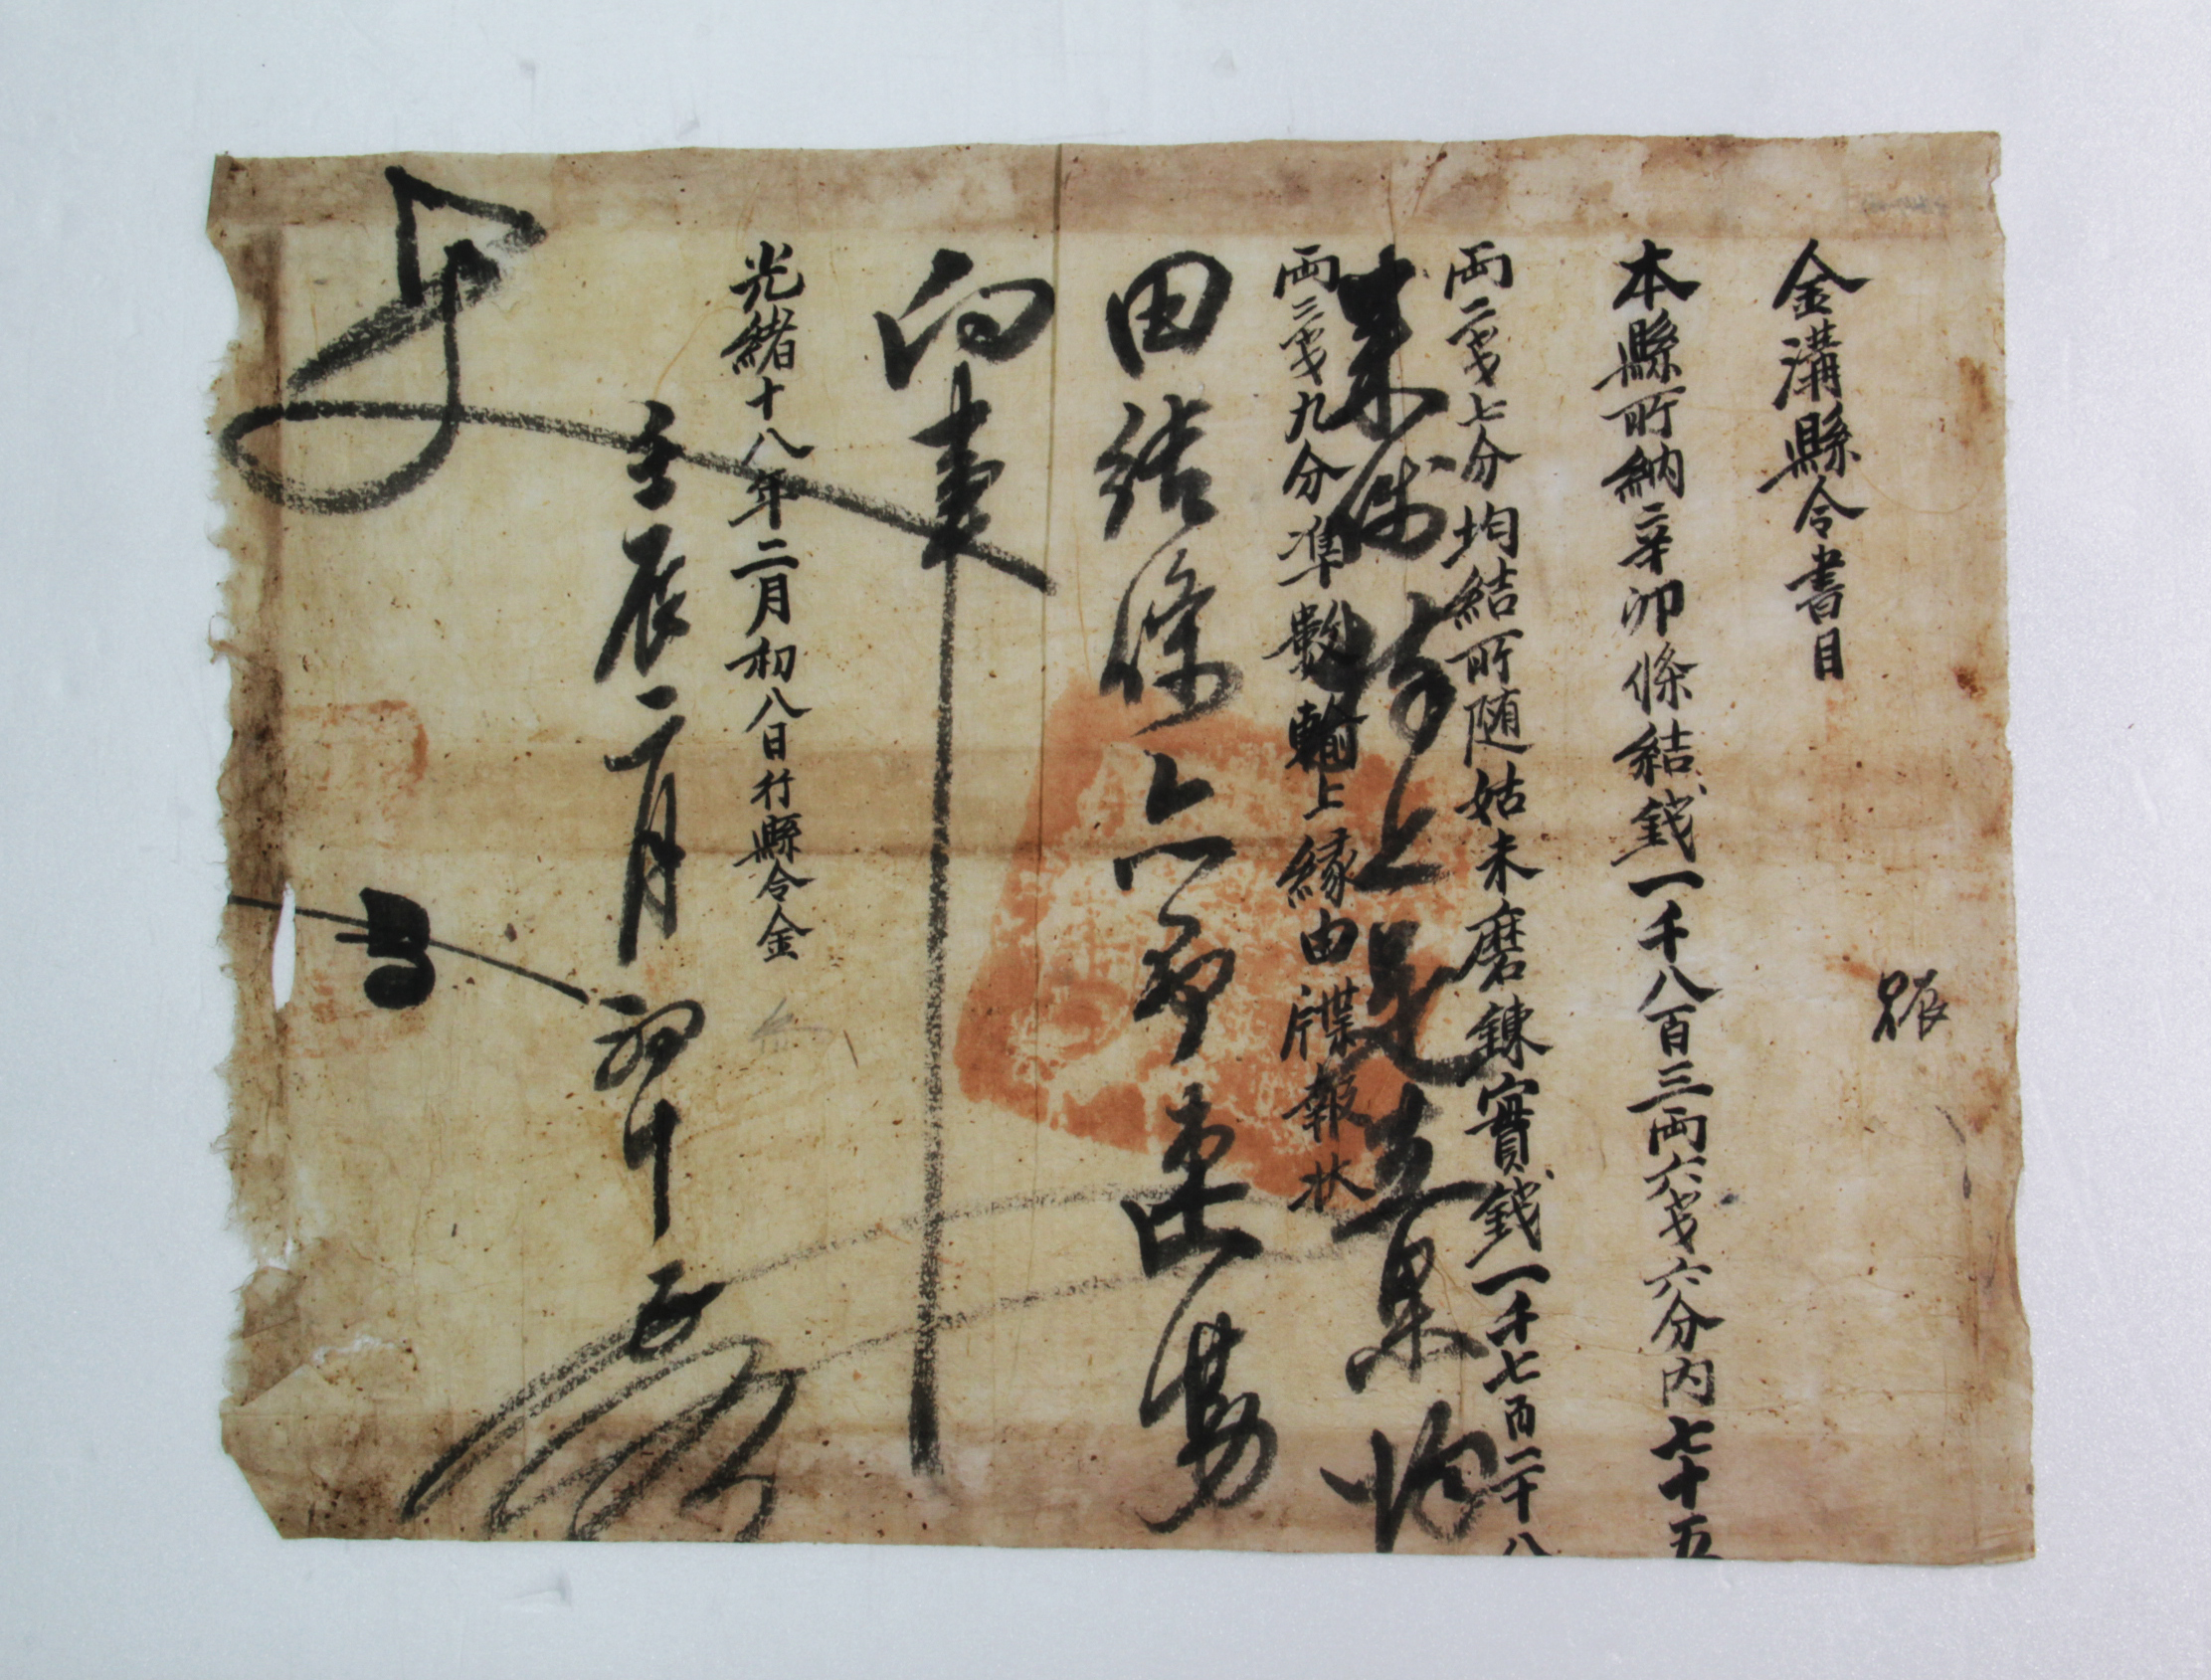 賑
金溝縣令書目
本縣所納辛卯條結錢一千八百三両六戔六分内七十五
両二戔七分均結所随姑未磨錬實錢一千七百二十八
両三戔九分準數輸上緣由牒報狀
来錢捧上是在果均
田結條亦即束勘
向事
光緒十八年二月初八日行縣令金
壬辰二月初十五